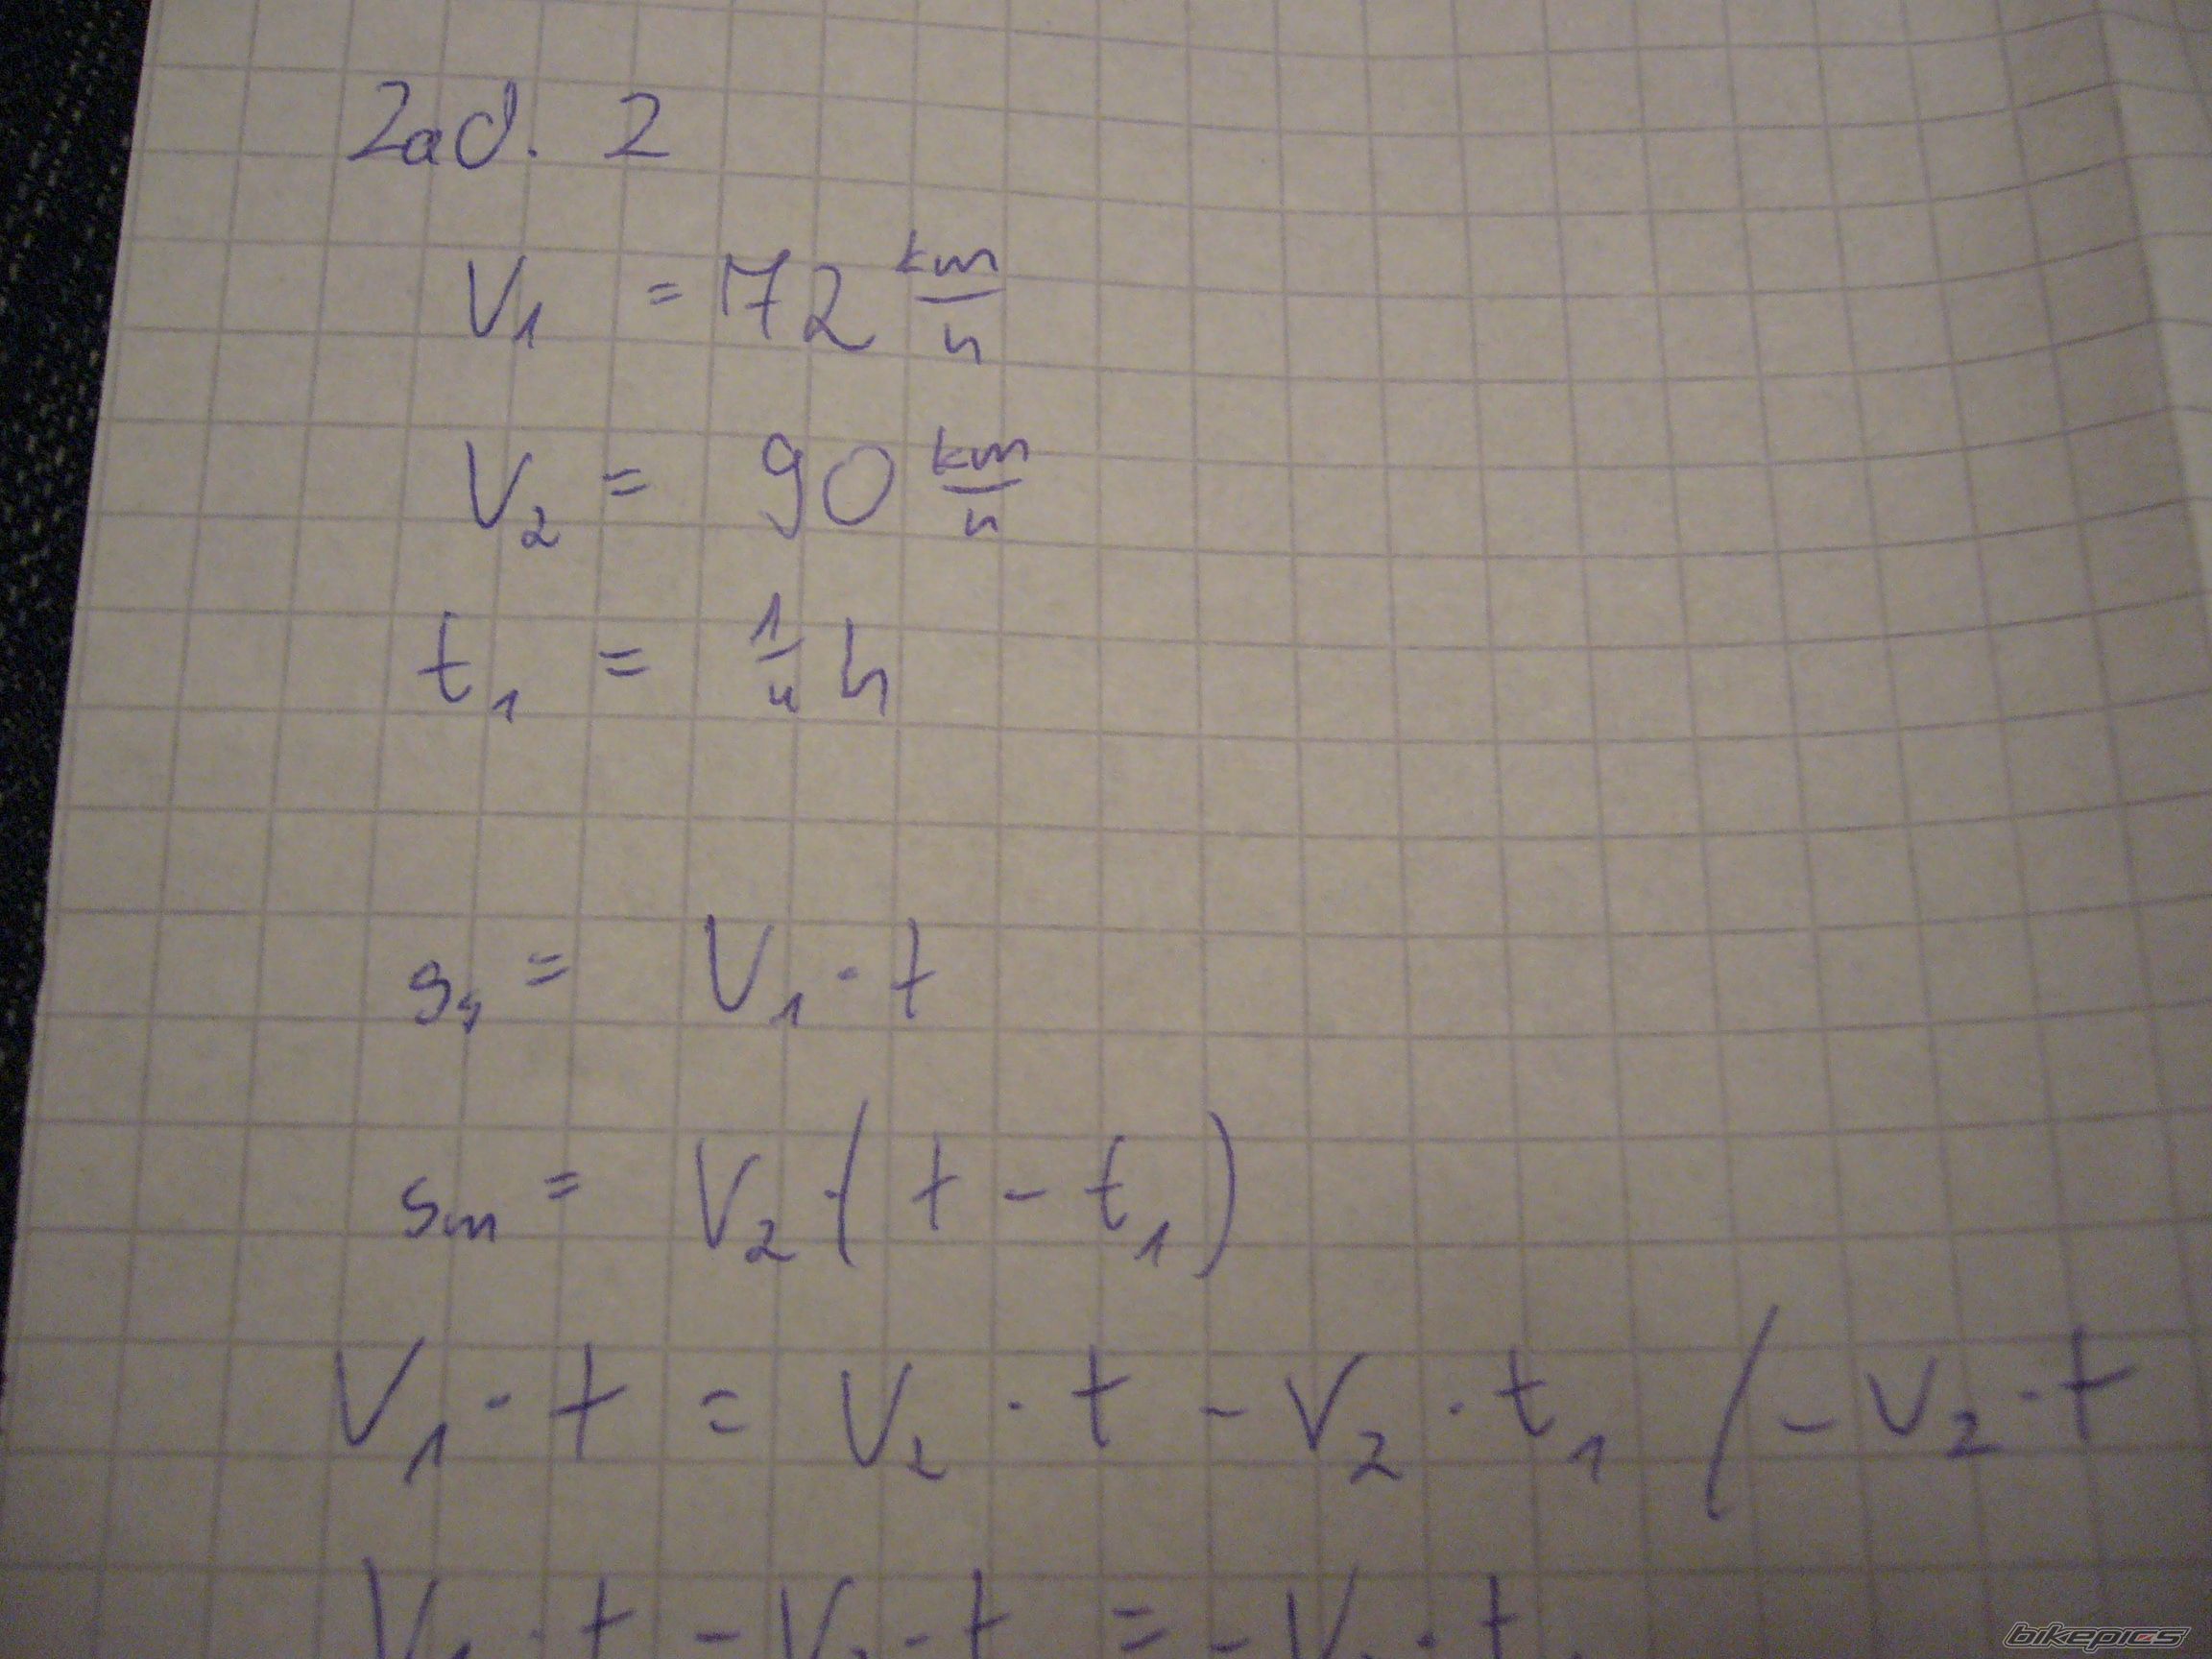 Zad. 2
V₁ = 72 km/h
V₂ = 90 km/h
t₁ = 1/4 h
s_s = V₁ · t
s_m = V₂ · (t - t₁)
V₁ · t = V₂ · t - V₂ · t₁ / - V₂ · t
V₁ · t - V₂ · t = - V₂ · t₁
bikepics